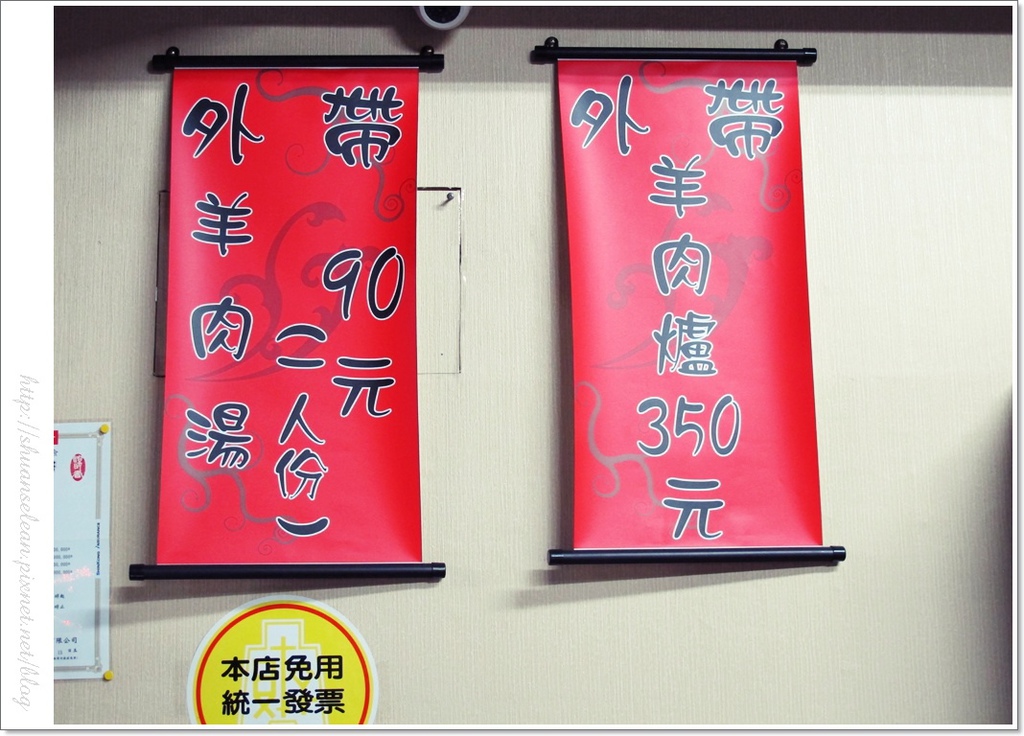 外帶
羊肉湯
90元
(二人份)
外帶
羊肉爐
350元
本店免用
統一發票
限公司
http://shuanselean.pixnet.net/blog